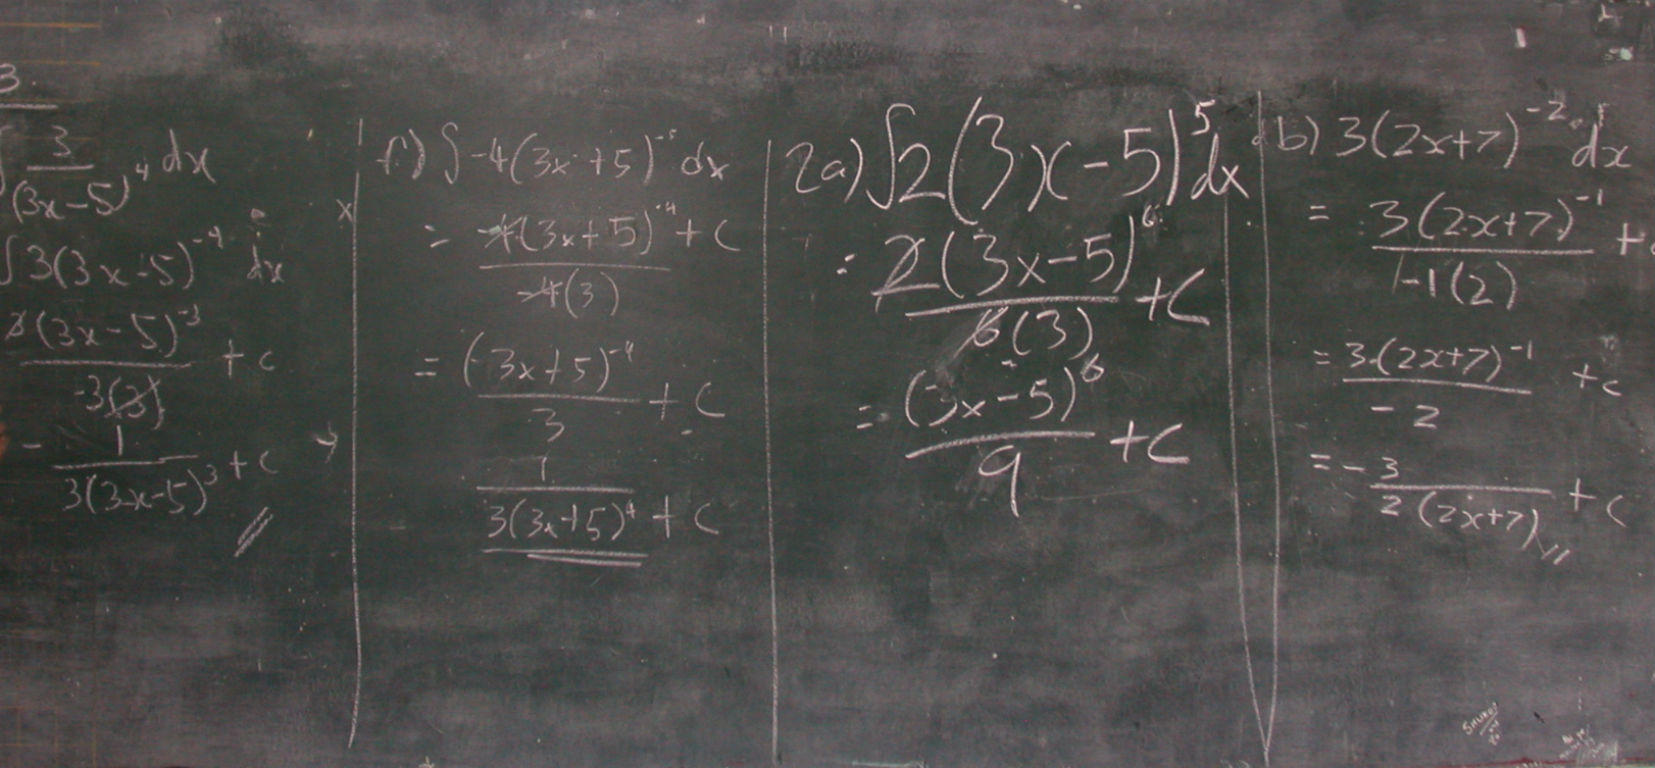 3.
∫ 3/(3x-5)^4 dx
∫3(3x-5)^-4 dx
3(3x-5)^-3/-3(3) + c
- 1/3(3x-5)^3 + c
f) ∫-4(3x+5)^-5 dx
= -4(3x+5)^-4/-4(3) + c
= (3x+5)^-4/3 + c
1/3(3x+5)^4 + c
2a) ∫2(3x-5)^5 dx
= 2(3x-5)^6/6(3) + c
= (3x-5)^6/9 + c
b) 3(2x+7)^-2 dx
= 3(2x+7)^-1/-1(2) +
= 3(2x+7)^-1/-2 + c
= - 3/2(2x+7) + c